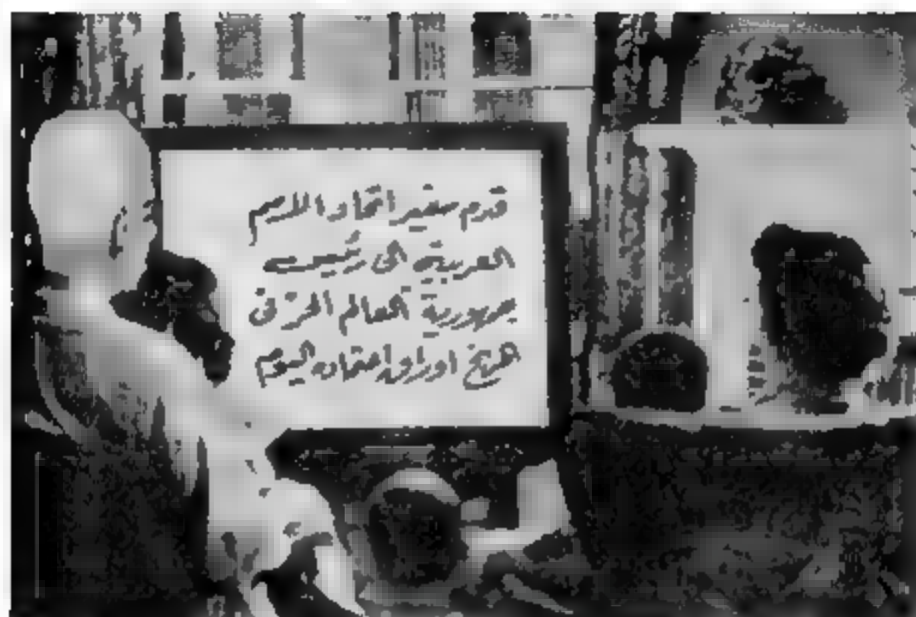 قدم سفير اتحاد الامم
العربية الى رئيس
جمهورية العالم الحر فى
المريخ اوراق اعتماده اليوم